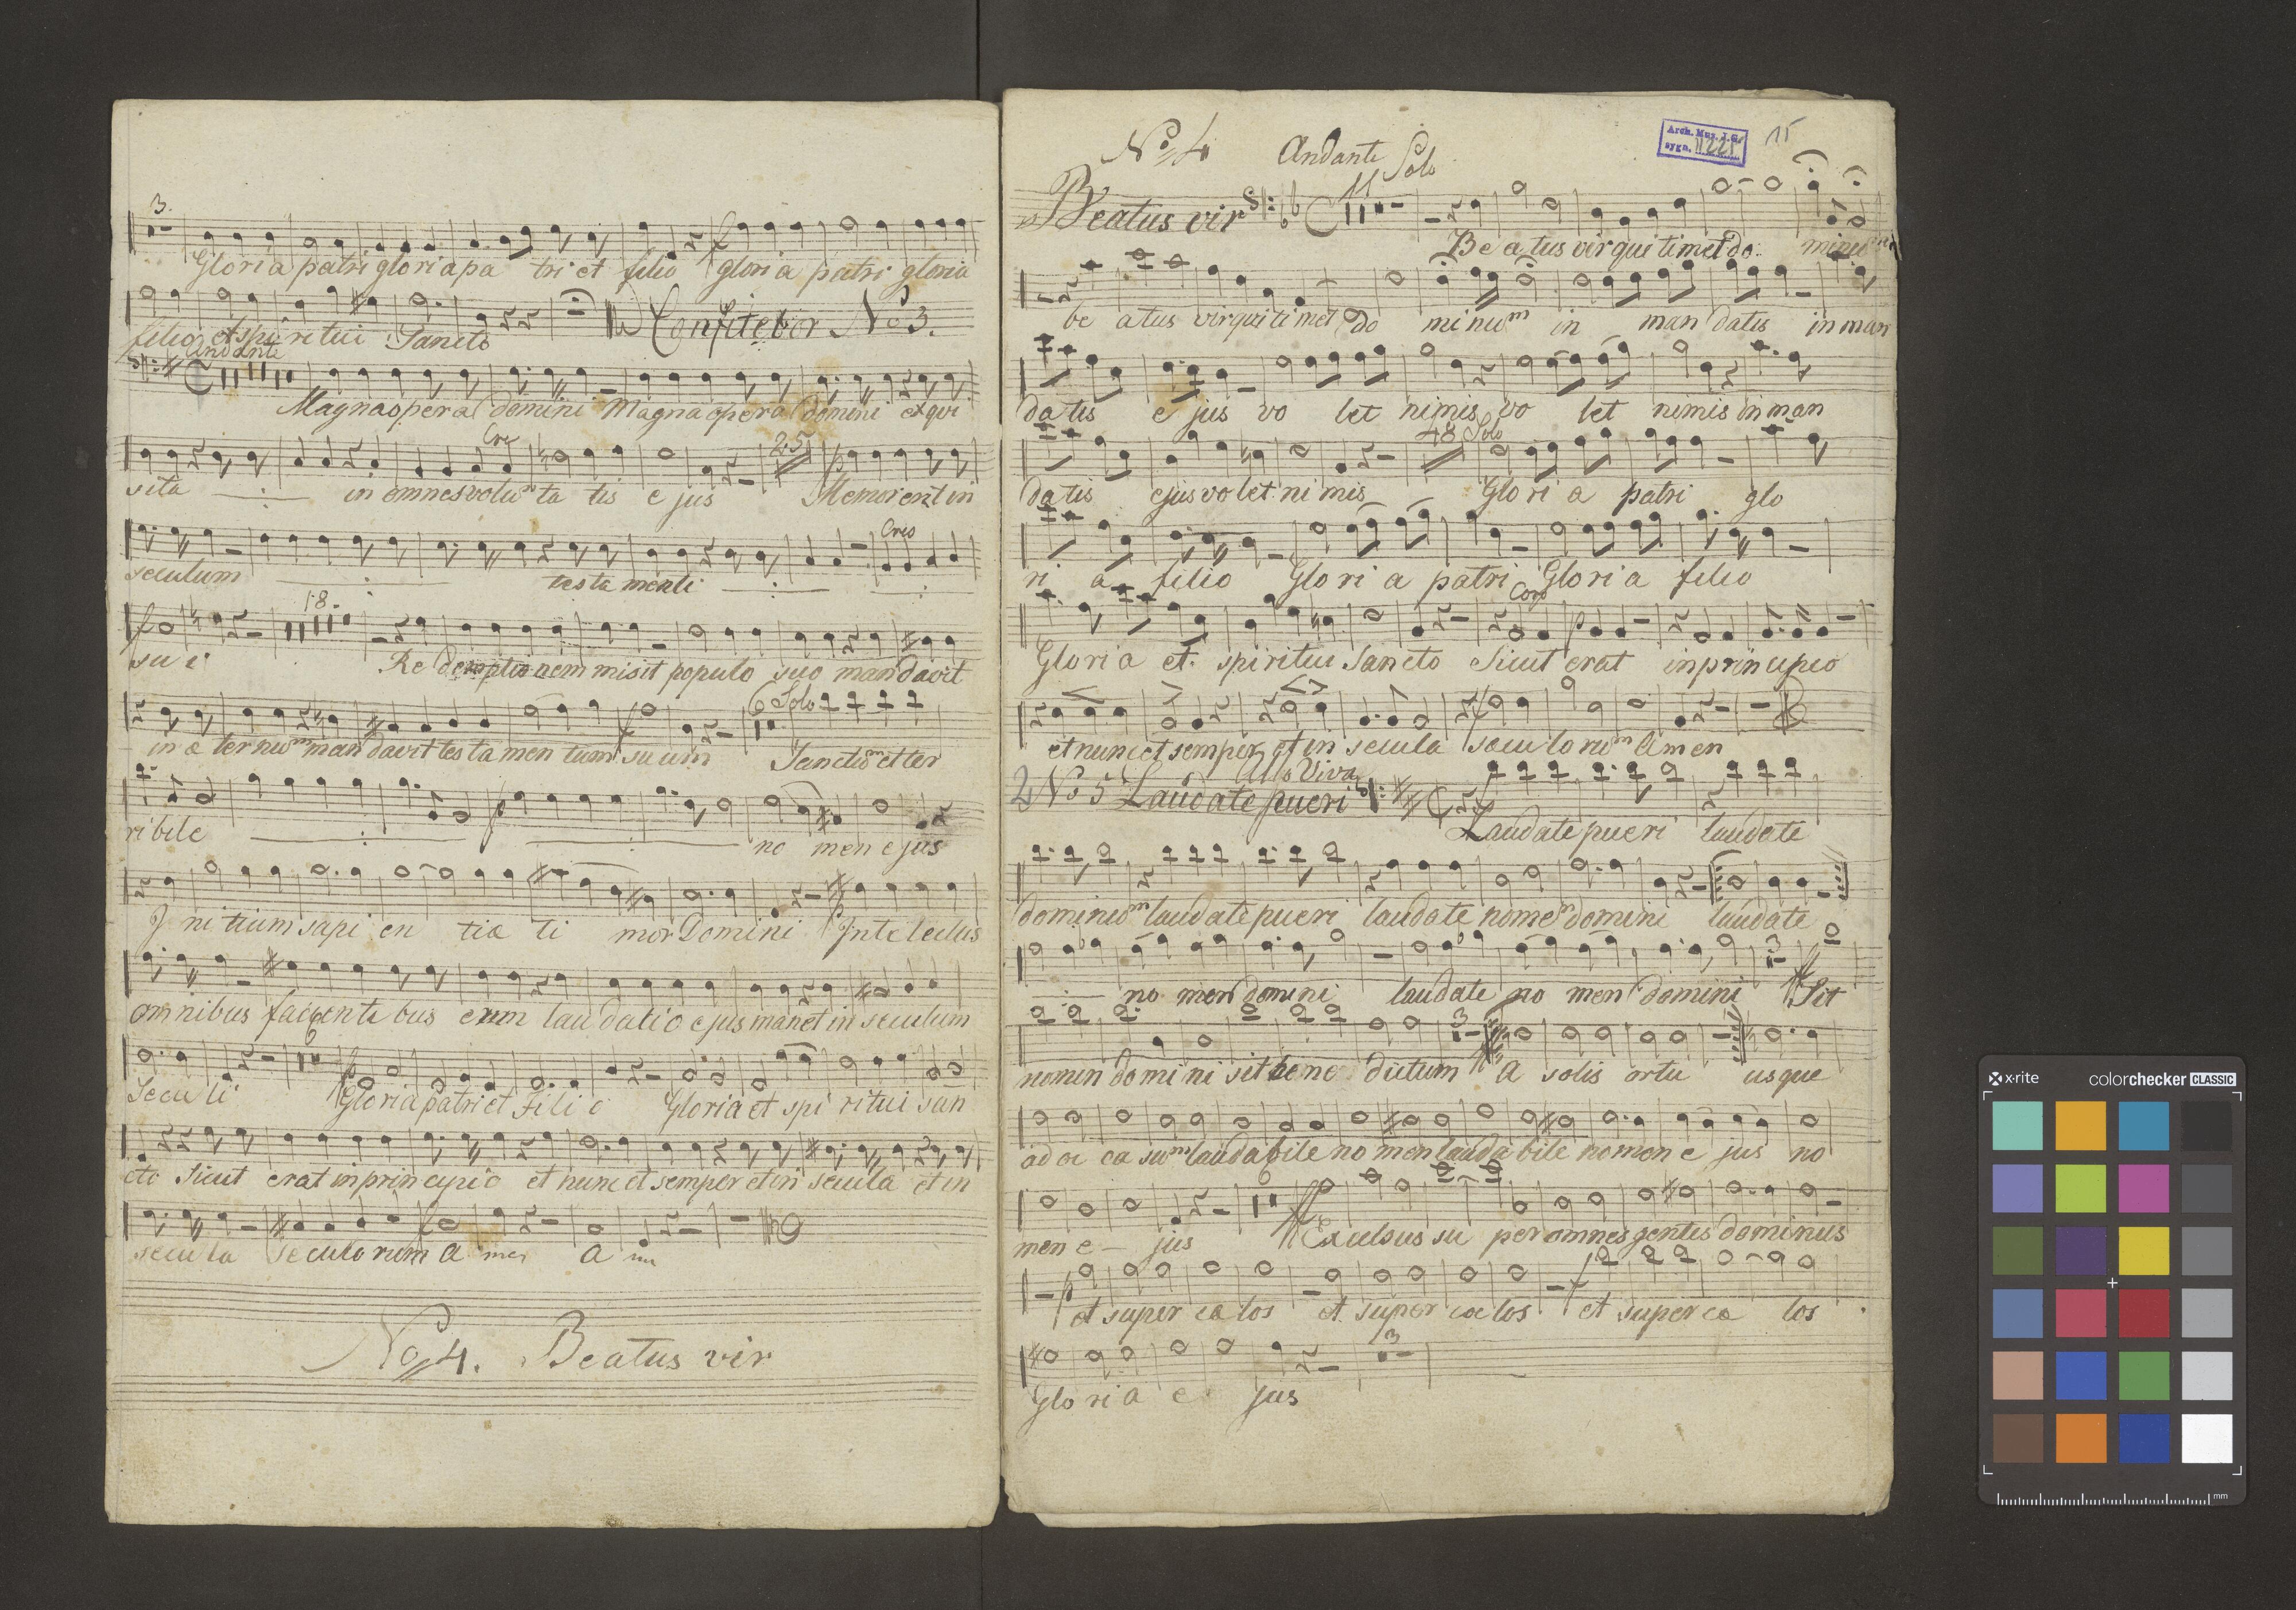 3.
Gloria patri gloria pa tri et filio gloria patri gloria
filio et spiritui Sancto Confitebor No 3.
Andante
Magna opera domini Magna opera domini exqui
Cre 2.5
sita in omnes volu^n ta tis e jus Memor erit in
Cres
seculum testamenti
18.
su i Re demptionem misit populo suo mandavit
6 Solo
in æ ternu^m mandavit testamen tum su um Sanctu^m et ter
ribile no men ejus
Initium sapi en tiæ ti mor Domini Intelectus
omnibus facienti bus eum laudatio ejus manet in seculum
6
Seculi Gloria patri et Filio Gloria et spi ritui san
cto Sicut erat in principio et nunc et semper et in secula et in
secula seculorum a men a
No 4. Beatus vir
No 4 Andante Solo
Arch. Muz. J.G.
sygn. II 225
15
Beatus vir 11
Be atus vir qui timet do minu^m
be atus vir qui timet do minu^m in man datis in man
datis e jus vo let nimis vo let nimis in man
48 Solo
datis ejus volet nimis Glori a patri glo
ri a filio Glori a patri Gloria filio
Coro
Gloria et spiritui Sancto Sicut erat in principio
et nunc et semper et in secula sæculoru^m Amen
2 No 5 Laudate pueri Allo Viva
Laudate pueri laudate
dominu^m laudate pueri laudate nome^n domini laudate
3
no men domini laudate no men domini Sit
3
nomen domini sit bene dictum A solis ortu usque
ad oc ca su^m laudabile no men lauda bile nomen e jus no
6
men e jus Excelsus su per omnes gentes dominus
et super cælos et super coelos et super cæ los
3
Glo ri a e jus
x·rite colorchecker CLASSIC
mm